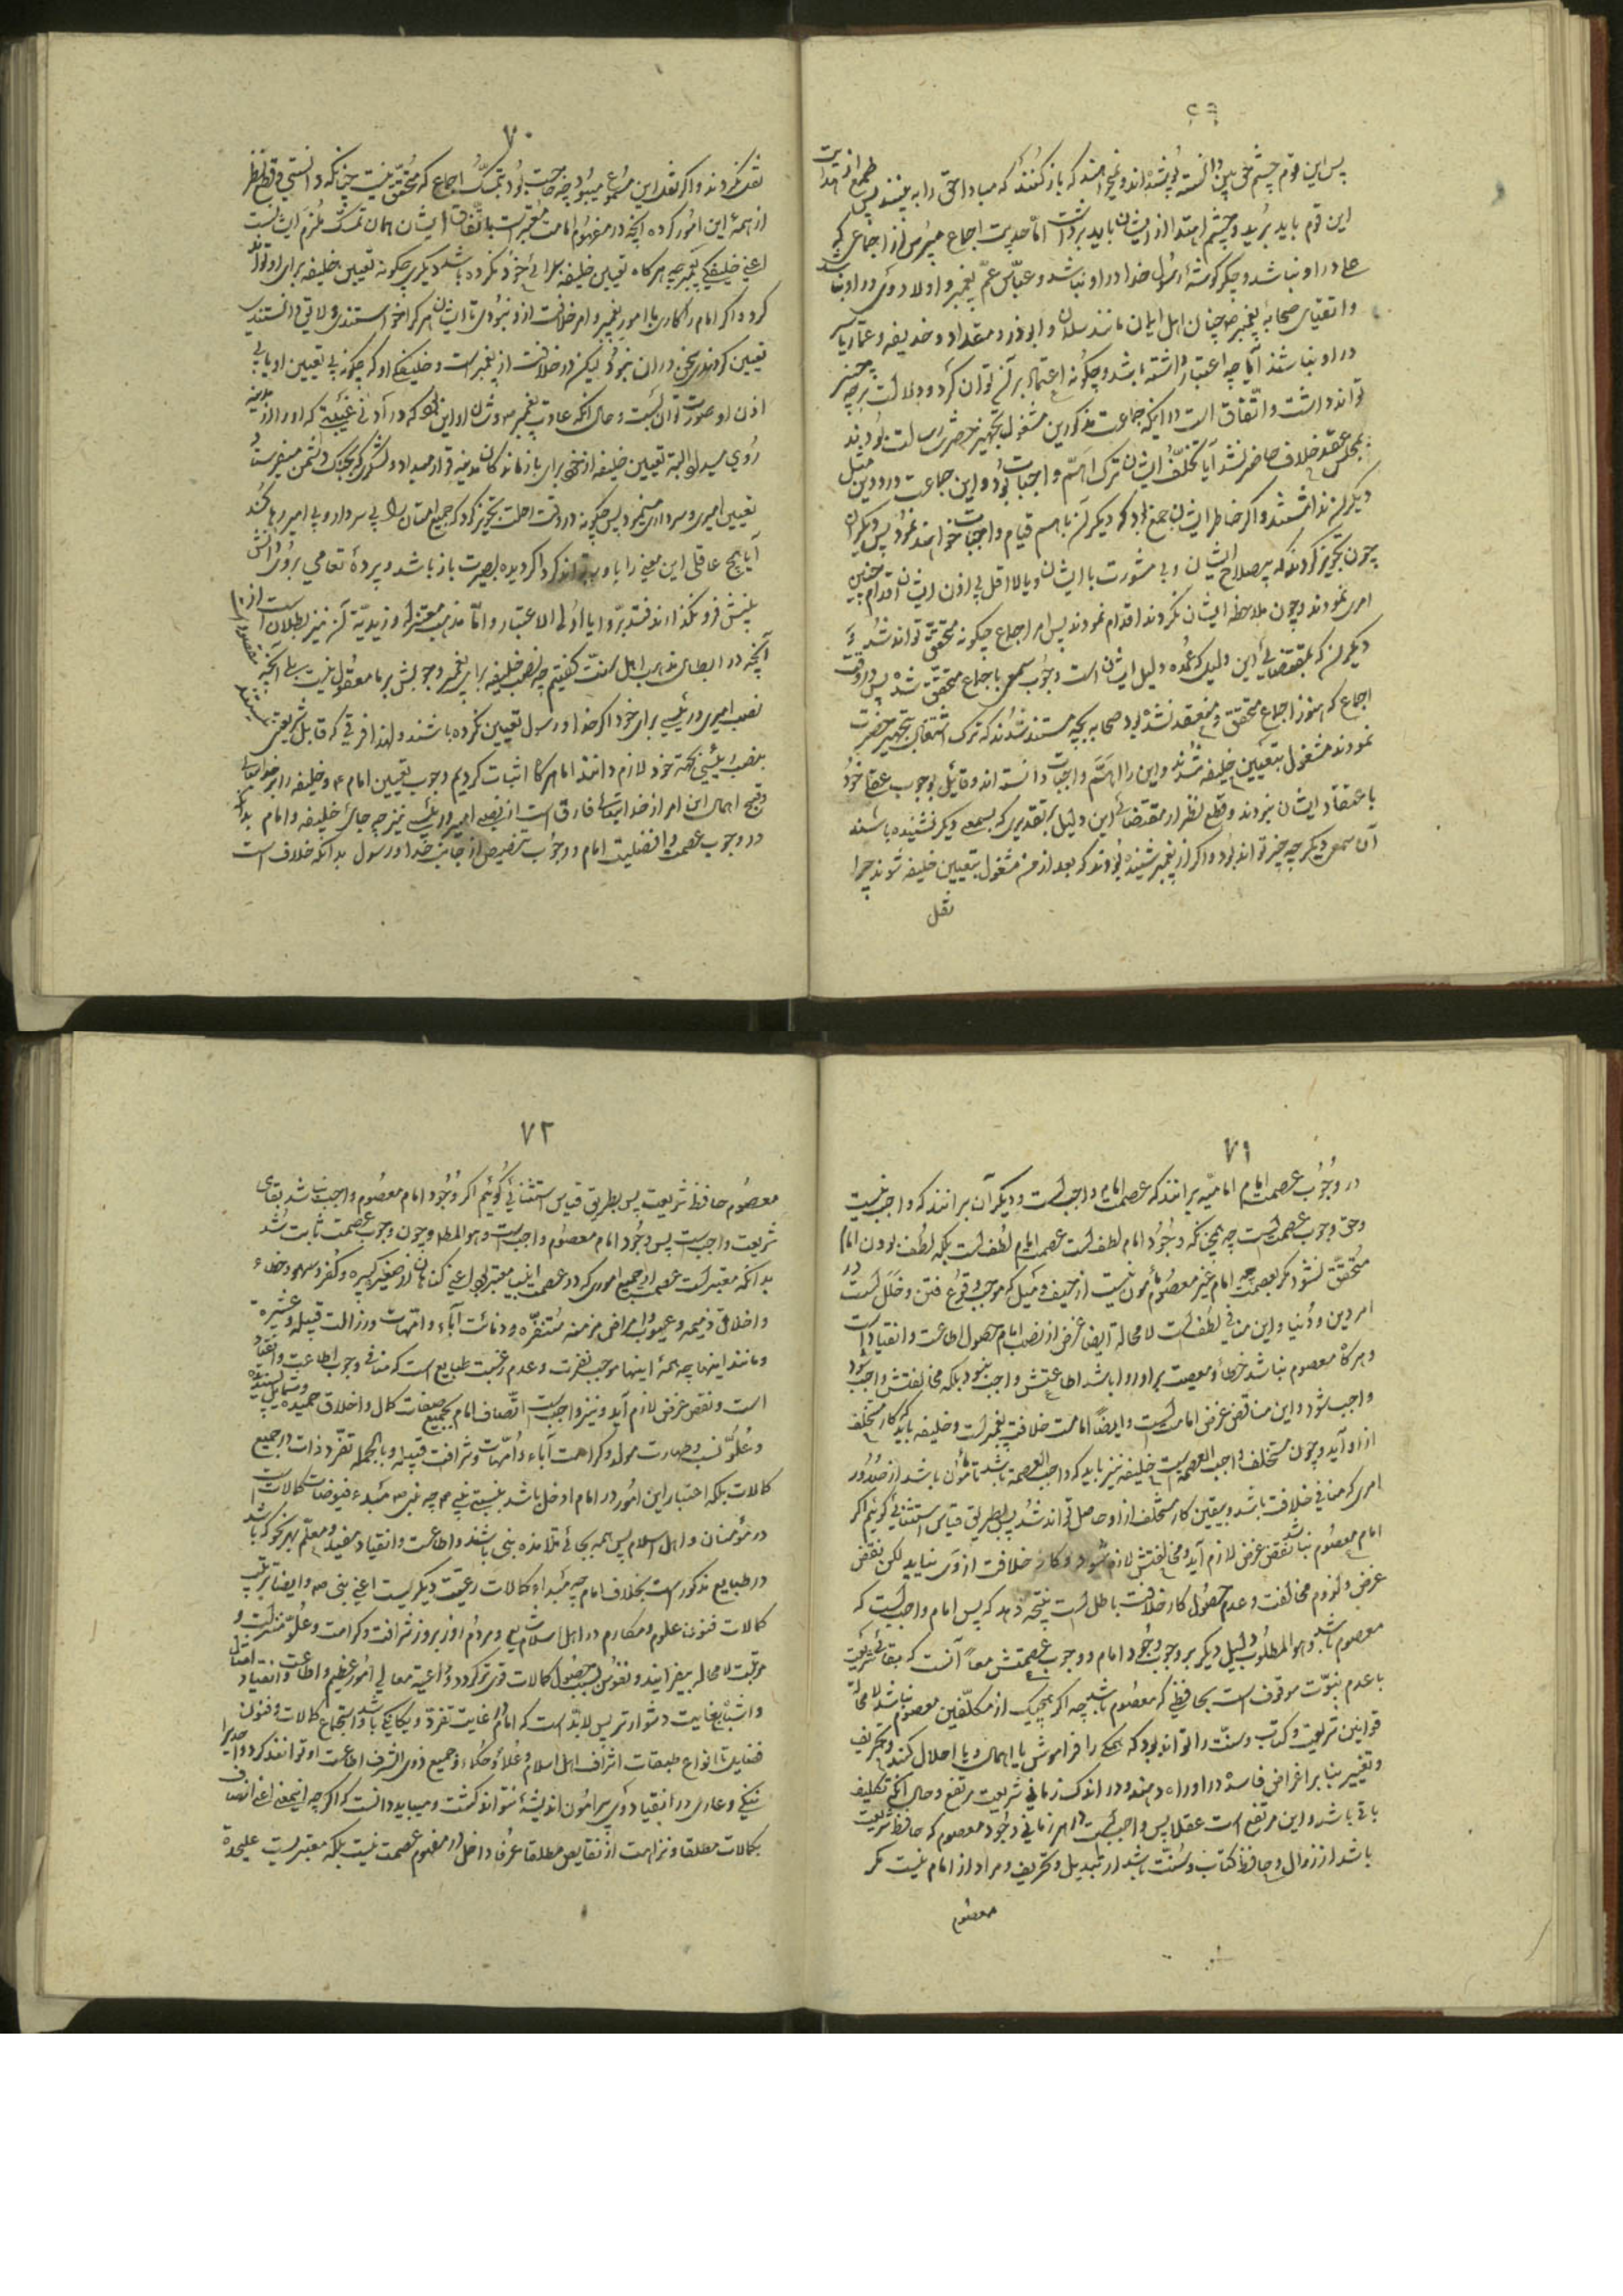 ۶۹
پس این قوم چشم حق بین دانسته پوشیده‌اند و نمیخواهند که باز کنند که مبادا حق را به بینند پس طمع از هدایت
این قوم باید برید و چشم اهتدا از ایشان باید برداشت اما حدیث اجماع مپرس از اجماعی که
علی در او نباشد و جگر گوشهٔ رسول خدا در او نباشد و عباس عم پیغمبر و اولاد وی در او نباشد
و اتقیای صحابه پیغمبر ص چنان اهل ایمان مانند سلمان و ابوذر و مقداد و حذیفه و عمار یاسر
در او نباشند آیا چه اعتبار داشته باشد و چگونه اعتماد بر آن توان کرد و دلالت بر چه چیز
تواند داشت و اتفاق است در اینکه جماعت مذکورین مشغول بتجهیز حضرت رسالت بودند
بمجلس عقد خلاف حاضر نشدند آیا تخلف ایشان ترک اهم واجبات بود و این جماعت در دین مثل
دیگران نداشتند و اگر خاطر ایشان جمع بود که دیگران باهم قیام واجبات خواهند نمود پس دیگران
چون تجویز کردند که بی صلاح ایشان و بی مشورت با ایشان و یا لااقل بی اذن ایشان اقدام چنین
امری نمودند و چون ملاحظه ایشان نکردند اقدام نمودند پس امر اجماع چگونه متحقق تواند شد و
دیگر آن که بمقتضای این دلیل که عمده دلیل ایشان است وجوب سمعی باجماع متحقق شده پس در وقت
اجماع که هنوز اجماع متحقق و منعقد نشده بود صحابه بچه مستند شدند که ترک اشتغال بتجهیز حضرت
نمودند مشغول بتعیین خلیفه شدند و این را اهم واجبات دانسته‌اند و قائل بوجوب عقلی خود
باعتقاد ایشان نبودند و قطع نظر از مقتضای این دلیل بر تقدیری که بسمعی دیگر نشنیده باشند
آن سمعی دیگر چه چیز تواند بود و اگر از پیغمبر شنیده بودند که بعد از من مشغول بتعیین خلیفه شوند چرا
نقل
۷۰
نقل نکردند و اگر نقل این مسموع میبود چه حاجت بود بتمسک اجماع که متحقق نیست چنانکه دانستی و قطع نظر
از همهٔ این امور کرده آنچه در مفهوم امامت معتبر است باتفاق ایشان همان تمسک ملزم ایشانست
اعنی خلیفگی پیغمبر چه هرگاه تعیین خلیفه برای خود نکرده باشد دیگری چگونه تعیین خلیفه برای او تواند
کرد و اگر امام را کاری با امور پیغمبر و امر خلافت از او نبودی تا ایشان هر که را میخواستندی و لایق دانستندی
تعیین کردندی سخن در آن نبودی لیکن در خلافت از پیغمبر است و خلیفگی او که چگونه بی تعیین او یا بی
اذن او صورت توان بست و حال آنکه عادت پیغمبر ص و شان او این بود که در ادنی غیبتی که او را از مدینه
روی میداد البته تعیین خلیفه از خود برای بازماندگان مدینه قرار میداد و لشکری که بجنگ دشمن میفرستاد
تعیین امیری و سرداری مینمود پس چگونه در وقت رحلت تجویز کرد که جمیع امتان را بی سردار و بی امیر رها کند
آیا هیچ عاقلی این معنی را باور تواند کرد اگر دیده بصیرت باز باشد و پردهٔ تعامی بروی دانش
بینش فرو نگذارند فتدبروا یا اولی الاعتبار و اما مذهب معتزله و زیدیه آن نیز بطلان است از
آنچه در ابطال مذهب اهل سنت گفتیم چه نصب خلیفه برای پیغمبر وجوبش بر ما معقول نیست بلی آنچه
نصب امیری و رئیسی برای خود اگر خدا و رسول تعیین نکرده باشند و لهذا فرقی که قابل شریعتی نیستند
بنصب رئیس بجهت خود لازم دانند اما هرگاه اثبات کردیم وجوب تعیین امام ع و خلیفه را بر خدایتعالی
و قبح اهمال این امر از خدایتعالی فارق است از نصب امیر و رئیس نیز چه جای خلیفه و امام بدانکه
در وجوب عصمت و افضلیت امام و وجوب تنصیص از جانب خدا و رسول بدانکه خلاف است
۷۱
در وجوب عصمت امام امامیه برانند که عصمت امام واجبست و دیگران برانند که واجب نیست
و حق وجوب عصمت است چه همچنانکه وجود امام لطف است عصمت امام لطف است بلکه لطف بودن امام
متحقق نشود مگر بعصمت چه امام غیر معصوم مأمون نیست از حیف و میل که موجب وقوع فتن و خلل است در
امر دین و دنیا و این منافی لطف است لا محاله و ایضا غرض از نصب امام حصول اطاعت و انقیاد است
و هرگاه معصوم نباشد خطا و معصیت بر او روا باشد اطاعتش واجب نبود بلکه مخالفتش واجب شود
واجب شود و این مناقض غرض امامت است و ایضاً امامت خلافت پیغمبر است و خلیفه باید که کار مستخلف
از او آید و چون مستخلف واجب العصمة است خلیفه نیز باید که واجب العصمة باشد تا مأمون باشد از صدور
امری که منافی خلافت باشد و بیقین کار مستخلف از او حاصل تواند شد پس بطریق قیاس استثنائی گوئیم اگر
امام معصوم نباشد نقض غرض لازم آید و مخالفتش لازم شود و کار خلافت از وی نیاید لکن نقض
غرض و لزوم مخالفت و عدم حصول کار خلافت باطل است نتیجه دهد که پس امام واجب است که
معصوم باشد و هو المطلوب دلیل دیگر بر وجوب وجود امام و وجوب عصمتش معاً آنست که بقای شریعت
با عدم نبوت موقوف است بحافظی که معصوم باشد چه اگر هیچیک از مکلفین معصوم نباشد لا محاله
قوانین شریعت و کتاب و سنت را تواند بود که همگی را فراموش یا اهمال و یا اخلال کنند و تحریف
و تغییر بنا بر اغراض فاسده در او راه دهند و در اندک زمانی شریعت مرتفع و حال آنکه تکلیف
باقی باشد و این مرتفع است عقلا پس واجب است در هر زمانی وجود معصوم که حافظ شریعت
باشد از زوال و حافظ کتاب و سنت باشد از تبدیل و تحریف و مراد از امام نیست مگر
معصوم
۷۲
معصوم حافظ شریعت پس بطریق قیاس استثنائی گوئیم اگر وجود امام معصوم واجب نباشد بقای
شریعت واجب نیست پس وجود امام معصوم واجب است و هو المط و چون وجوب عصمت ثابت شد
بدانکه معتبر است عصمت امام از جمیع اموری که در عصمت انبیا معتبر است اعنی گناهان از صغیره و کبیره و کفر و سهو و خطاء
و اخلاق ذمیمه و عیوب و امراض مزمنه متنفره و دنائت آباء و امهات و رزالت قبیله و عشیرة
و مانند اینها چه همهٔ اینها موجب نفرت و عدم رغبت طبایع است که منافی وجوب اطاعت و انقیاد
است و نقض غرض لازم آید و نیز واجب است اتصاف امام بجمیع صفات کمال و اخلاق حمیده و شمایل پسندیده
و علو نسب و طهارت مولد و کرامت آباء و امهات و شرافت قبیله و بالجمله تفرد ذات در جمیع
کمالات بلکه اعتبار این امور در امام ادخل باشد نسبت بنبی ص چه نبی ص مبدء فیوضات کمالات است
در مؤمنان و اهل اسلام پس همه بجای تلامذه نبی باشند و اطاعت و انقیاد مفید و معلم بهر نحو که باشد
در طبایع مذکور است بخلاف امام چه مبداء کمالات رعیت دیگریست اعنی نبی ص و ایضا بترتیب
کمالات فنون علوم و مکارم در اهل اسلام شایع و مردم روز بروز شرافت و کرامت و علو منزلت و
مرتبت لا محاله بیفزایند و نفوس بسبب حصول کمالات قوی‌تر گردد و داعیهٔ معالی امور عظیم و اطاعت و انقیاد امثال
و اشباه بغایت دشوارتر پس لابد است که امام در غایت تفرد و یگانگی باشد و استجماع کمالات و فنون
فضایل تا انواع طبقات اشراف اهل اسلام و علما و حکماء و جمیع ذوی الشرف اطاعت او توانند کرد و احدی را
ننگی و عاری در انقیاد وی پیرامون اندیشهٔ نتواند گشت و میباید دانست که اگر چه اینمعنی اعنی اتصاف
بکمالات مطلقا و نزاهت از نقایص مطلقا عرفا داخل در مفهوم عصمت نیست بلکه معتبریست علیحدة